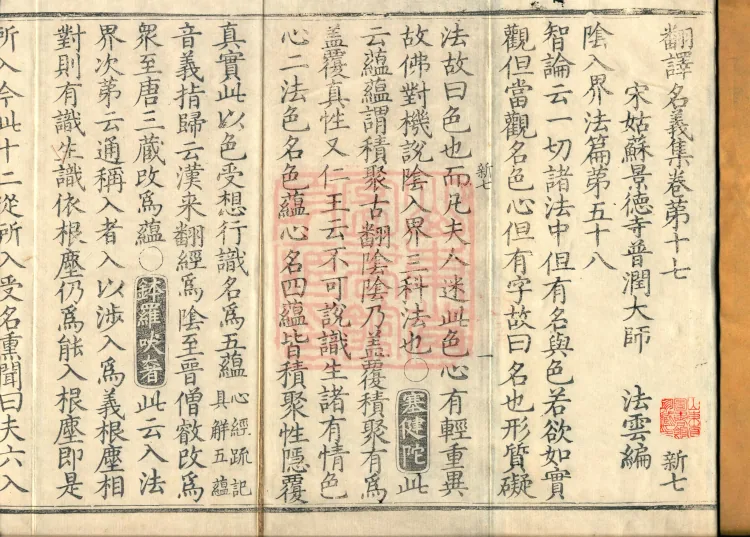 翻譯名義集卷第十七　新七
宋姑蘇景德寺普潤大師　法雲編
陰入界法篇第五十八
智論云一切諸法中但有名與色若欲如實
觀但當觀名色心但有字故曰名也形質礙
新七　一
法故曰色也而凡夫人迷此色心有輕重異
故佛對機說陰入界三科法也○塞健陀此
云蘊蘊謂積聚古翻陰陰乃蓋覆積聚有為
蓋覆真性又仁王云不可說識生諸有情色
心二法色名色蘊心名四蘊皆積聚性隱覆
真實此以色受想行識名為五蘊心經疏記具解五蘊
音義指歸云漢來翻經為陰至晉僧叡改為
眾至唐三藏改為蘊○鉢羅吠奢此云入法
界次第云通稱入者入以涉入為義根塵相
對則有識生識依根塵仍為能入根塵即是
所入今此十二從所入受名熏聞曰夫六入